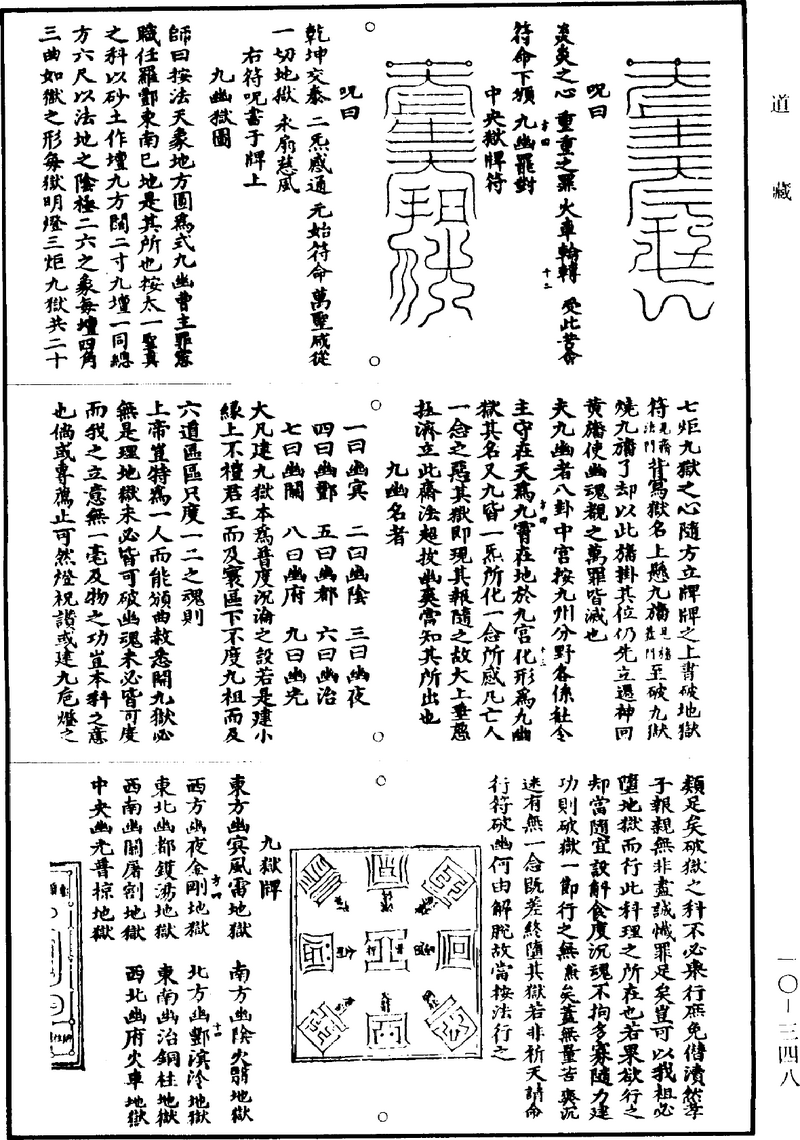 道藏
呪曰
炎炎之心 重重之罪 火車輪轉 受此苦者
符命下頒 九幽罷對
中央獄牌符
呪曰
乾坤交泰 二炁感通 元始符命 萬聖咸從
一切地獄 永扇慈風
右符呪書于牌上
九幽獄圖
師曰按法天象地方圓爲式九幽曹主罪寃
職任羅酆東南巳地是其所也按太一聖真
之科以砂土作壇九方闊二寸九壇一同總
方六尺以法地之陰極二六之象每壇四角
三曲如獄之形每獄明燈三炬九獄共二十
七炬九獄之心隨方立牌牌之上書破地獄
符寫獄名上懸九旛至破九獄
燒九旛了却以此旛掛其位仍先立還神回
黄旛使幽魂覩之萬罪皆滅也
夫九幽者八卦中宫按九州分野各係社令
主守在天爲九霄在地於九宫化形爲九幽
獄其名又九皆一炁所化一念所感凡亡人
一念之惡其獄即現其報隨之故太上垂愍
拯濟立此齋法超拔幽爽當知其所出也
九幽名者
一曰幽冥 二曰幽陰 三曰幽夜
四曰幽酆 五曰幽都 六曰幽治
七曰幽關 八曰幽府 九曰幽光
大凡建九獄本爲普度沉淪之設若是建小
緣上不禮君王而及寰區下不度九祖而及
六道區區只度一二之魂則
上帝豈特爲一人而能頒曲赦悉開九獄必
無是理地獄未必皆可破幽魂未必皆可度
而我之立意無一毫及物之功豈本科之意
也倘或專薦止可然燈祝讃或建九巵燈之
類足矣破獄之科不必舉行庶免僣瀆然孝
子報親無非盡誠懺罪足矣豈可以我祖必
墮地獄而行此科理之所在也若果欲行之
却當隨宜設斛食度沉魂不拘多寡隨力建
功則破獄一節行之無焦矣蓋無量苦爽沉
迷有無一念既差終隨其獄若非祈天請命
行符破幽何由解脫故當按法行之
九獄牌
東方幽冥風雷地獄 南方幽陰火翳地獄
西方幽夜金剛地獄 北方幽酆溟泠地獄
東北幽都鑊湯地獄 東南幽治銅柱地獄
西南幽關屠割地獄 西北幽府火車地獄
中央幽光普掠地獄
一〇-三四八